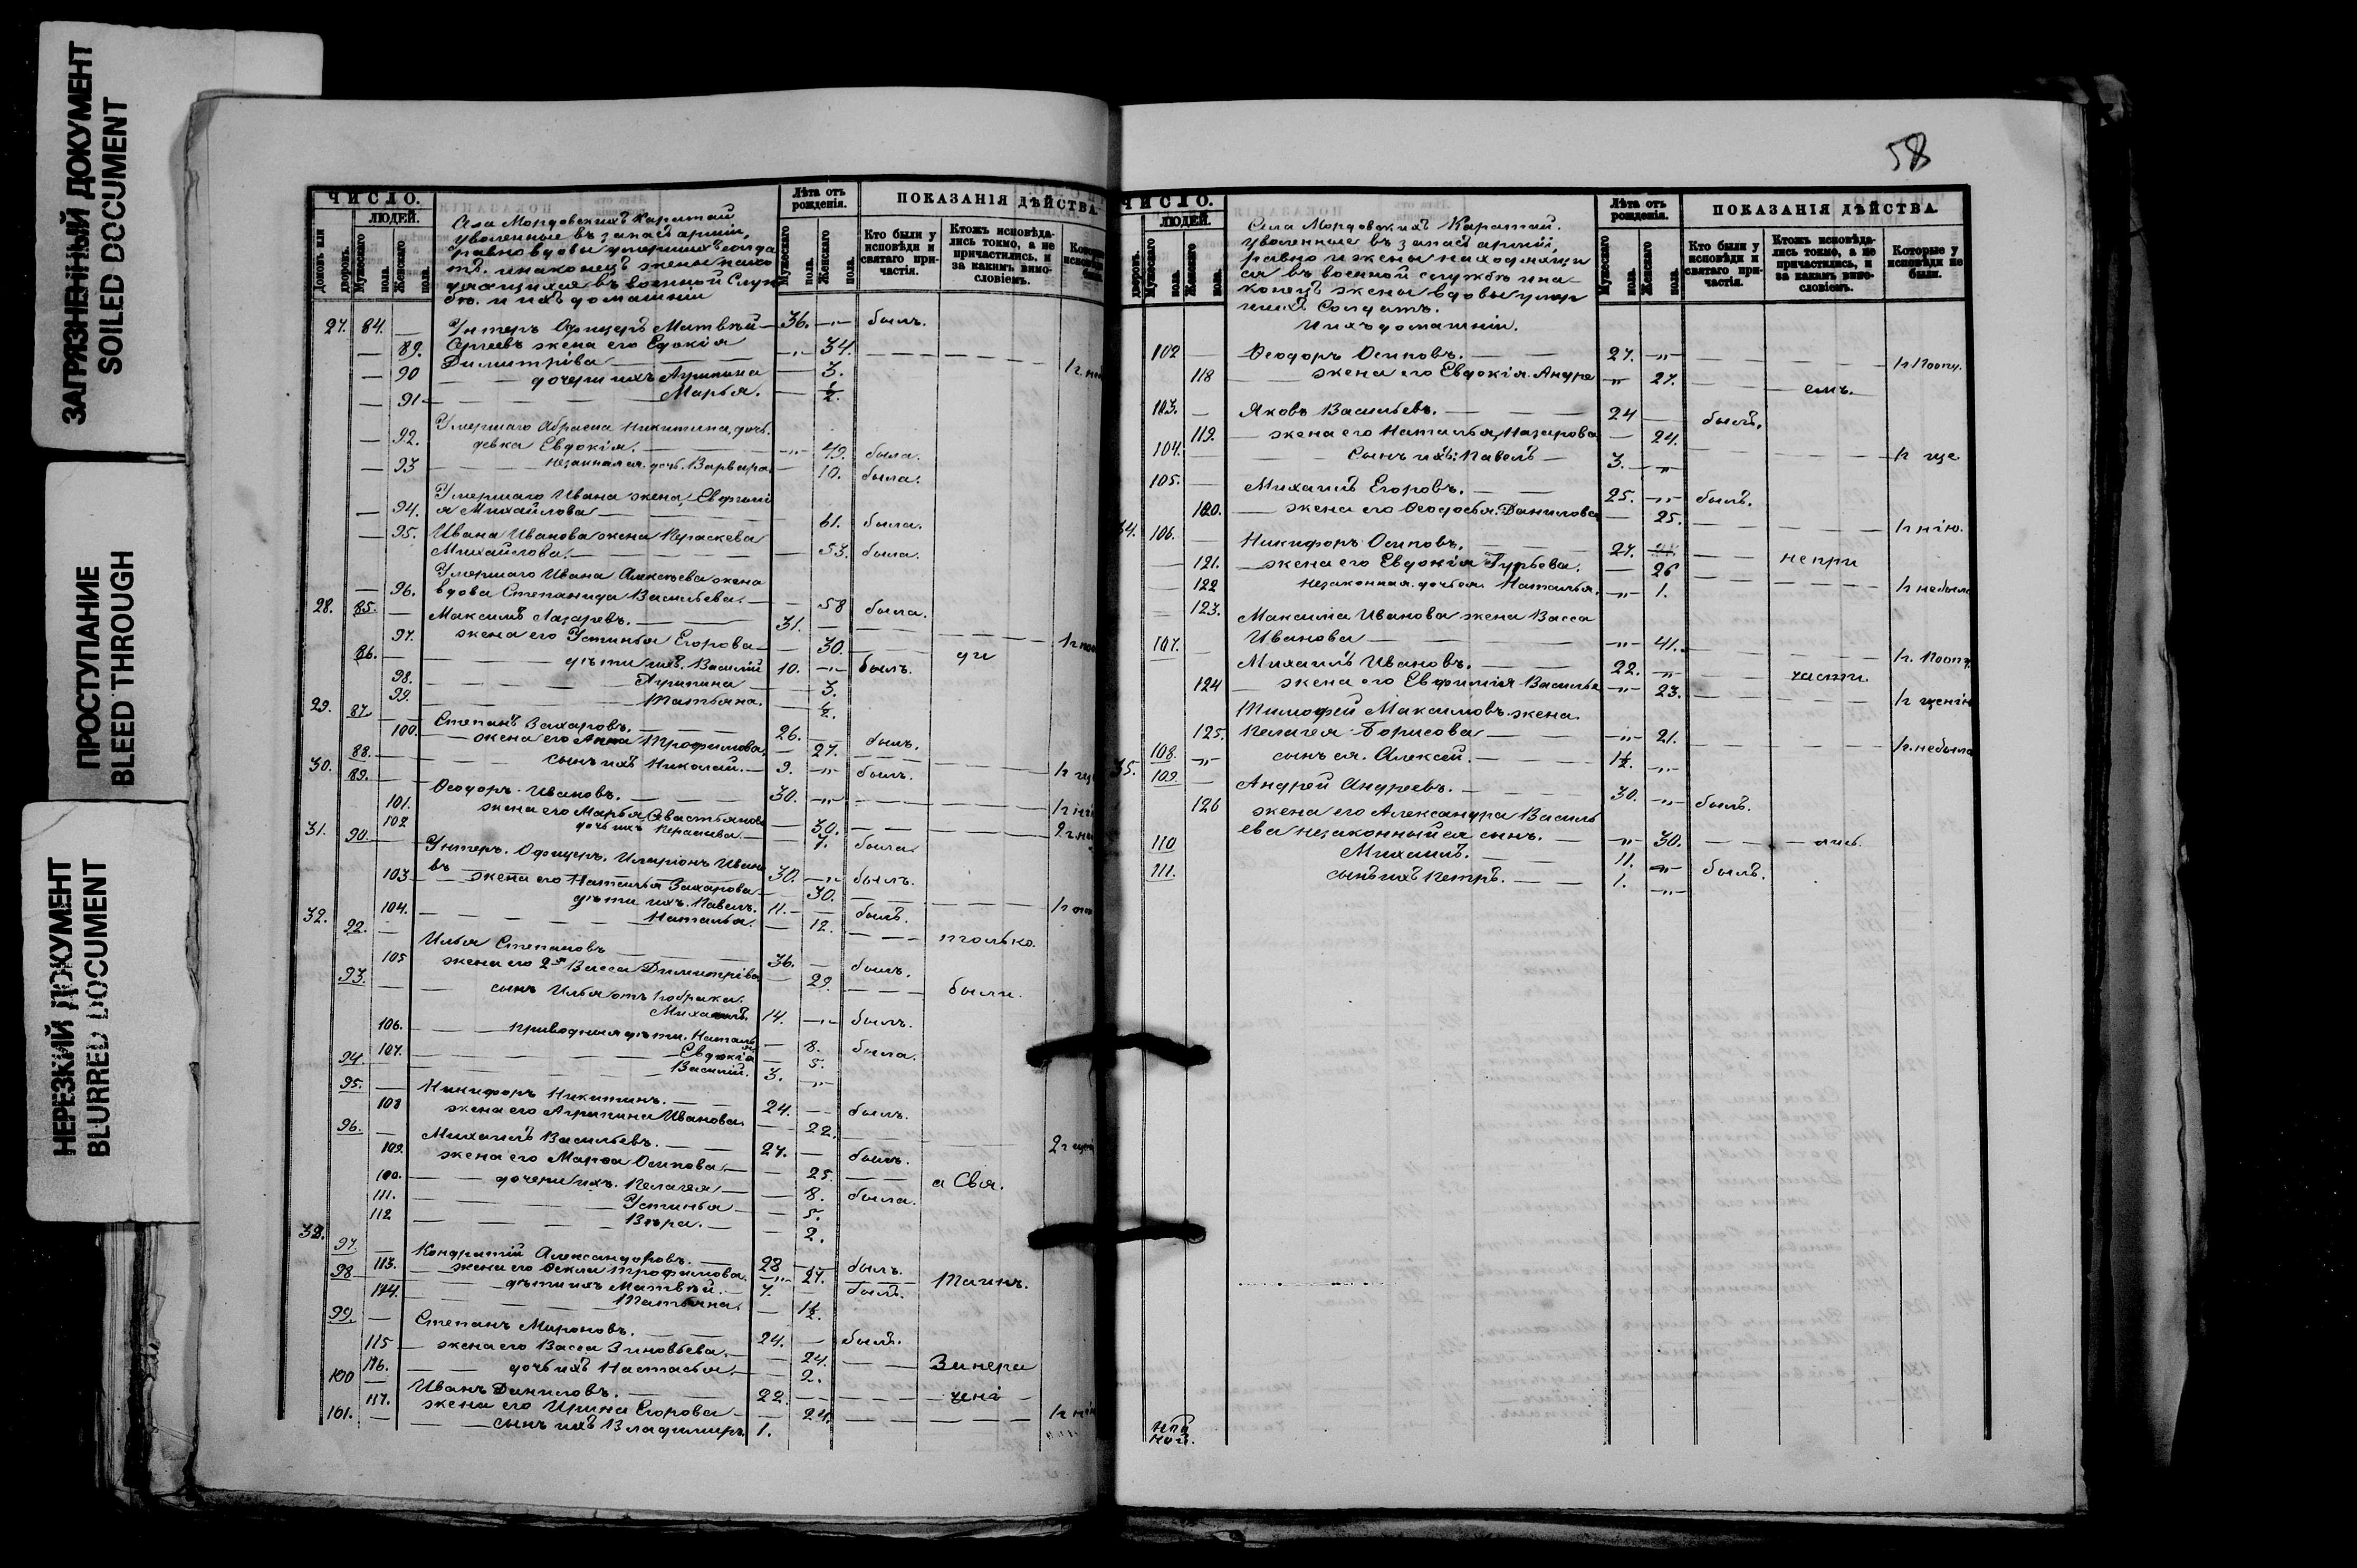 ЗАГРЯЗНЕННЫЙ ДОКУМЕНТ
SOILED DOCUMENT
ПРОСТУПАНИЕ
BLEED THROUGH
НЕРЕЗКИЙ ДОКУМЕНТ
BLURRED DOCUMENT
ЧИСЛО.
ЛЮДЕЙ.
Домовъ или дворовъ.
Мужескаго пола.
Женскаго пола.
Села Мордовскихъ Каратай
уволенные въ запасъ арміи,
равно вдовы умершихъ солда
тъ. инаконецъ жены нахо
дящихся въ военной Служ
бѣ. и ихъ домашніи
Лѣта отъ рожденія.
Мужескаго пола.
Женскаго пола.
ПОКАЗАНІЯ ДѢЙСТВА
Кто были у исповѣди и святаго причастія.
Ктожъ исповѣдались токмо, а не причастились, и за какимъ винословіемъ.
27. 84. — Унтеръ Офицеръ Матвѣй — 36. — былъ.
— 89. Сергеевъ жена его Едокія
Димитріва — 34.
— 90 дочери ихъ Агрипина — 3.
— 91 Марья. — ½.
Умершаго Абрама Никитина, дочь.
— 92. девка Евдокія. — 49. была.
— 93 Незаконная дочь. Варвара. — 10. была.
Умершаго Ивана жена, Евфимі
— 94. я Михайлова — 61. была.
— 95. Ивана Иванова жена Праскева
Михайлова. — 53. была.
Умершаго Ивана Алексѣева жена
— 96. вдова Степанида Васильева. — 58 была.
28. 85. — Максимъ Лазаревъ. — 31. —
97. жена его Устинья Егорова — 30.
86. дѣти ихъ. Василій 10. — былъ.
98. Агрипина — 3.
99. Татьяна. — ½.
29. 87. — Степанъ Захаровъ. 26. — былъ.
100. жена его Анна Трофимова. — 27.
88. сынъ ихъ Николай. — 9. — былъ.
30. 89. Ѳеодоръ Ивановъ. 30. —
101. жена его Марья Савастьянова — 30.
102 дочь ихъ Прасква — 7. была
31. 90. Унтеръ. Офицеръ. Иларіонъ Ивано
въ 30. — былъ.
103 жена его Наталья Захарова — 30.
дѣти ихъ. Павелъ. 11. — былъ.
104. Наталья. — 12. только.
32. 92. Илья Степановъ 36. — былъ.
105 жена его 2я Васса Димитріва — 29. были.
93. сынъ Ильи отъ 1го брака.
Михаилъ. 14. — былъ.
106. приводныя дѣти. Наталья — 8. была.
107. Евдокія — 5.
94. Василій. 3. —
95. — Никифоръ Никитинъ. 24. — былъ.
108 жена его Агрипина Иванова. — 22.
96. — Михаилъ Васильевъ. 27. — былъ.
109. жена его Марѳа Осипова — 25. а Свя.
дочери ихъ. Пелагея — 8. была.
111. Устинья — 5.
112 Вѣра. — 2.
97. — Кондратій Александровъ. 28 — былъ.
113. жена его Ѳекла Трофимова. — 27. Таинъ.
98 дѣти ихъ Матвѣй. — 7. былъ.
114. Татьяна. — 1½.
99. — Степанъ Мироновъ. 24. — былъ.
115 — жена его Васса Зиновьева. — 24.
116. дочь ихъ Настасья — 2.
100 — Иванъ Даниловъ. 22. —
117. жена его Ирина Егорова — 24.
101. — сынъ ихъ Владимиръ. 1.
58
ЧИСЛО.
ЛЮДЕЙ.
дворовъ.
Мужескаго пола.
Женскаго пола.
Села Мордовскихъ Каратай.
уволенные въ запасъ арміи,
равно и жены находящи
ся въ военной службѣ ина
конецъ жены вдовы умер
шихъ Солдатъ.
Ихъ домашніи.
Лѣта отъ рожденія.
Мужескаго пола.
Женскаго пола.
ПОКАЗАНІЯ ДѢЙСТВА.
Кто были у исповѣди и святаго причастія.
Ктожъ исповѣдались токмо, а не причастились, и за какимъ винословіемъ.
Которые у исповѣди не были.
102 — Ѳеодоръ Осиповъ. — 27. —
118 жена его Евдокія Андре — 27. емъ.
103. — Яковъ Васильевъ. — 24 — былъ.
119. — жена его Наталья Назарова — 24.
104. Сынъ ихъ: Павелъ — 3. —
105. — Михаилъ Егоровъ. — 25. — былъ.
120. — жена его Ѳеодосья Данилова — 25.
34. 106. — Никифоръ Осиповъ. 27. — непри
— 121. — жена его Евдокія Гурьева. — 26
— 122 незаконная дочь ея. Наталья. — 1.
— 123. Максима Иванова жена Васса
Иванова — 41.
107. Михаилъ Ивановъ. 22. — части
124 жена его Евфимія Василье — 23.
Тимофей Максимовъ жена.
125. Пелагея Борисова — 21.
108. — сынъ ея. Алексѣй. — 1½. —
35. 109. — Андрей Андреевъ. 30. — былъ.
126 жена его Александра Василь
ева незаконный ея сынъ. — 30. лись.
110 Михаилъ. 11. — былъ.
111. сынъ ихъ Петръ. — 1. —